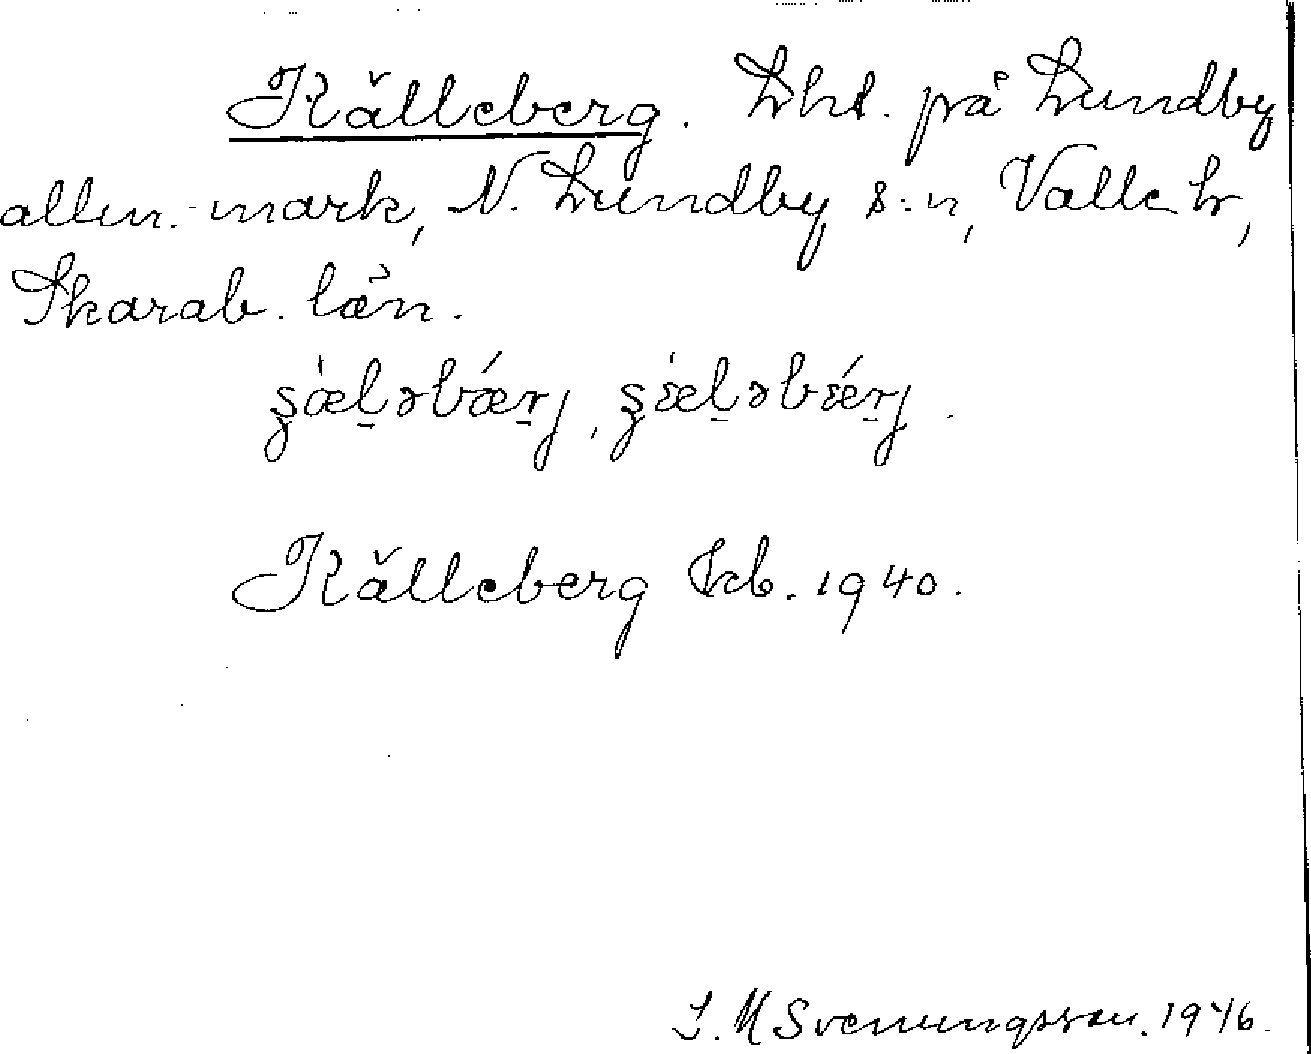 Källeberg. Lht. på Lundby
allm. mark, N. Lundby s:n, Valle hr,
Skarab. län.
Källeberg kb. 1940.
S. M Svenungsson. 1946.